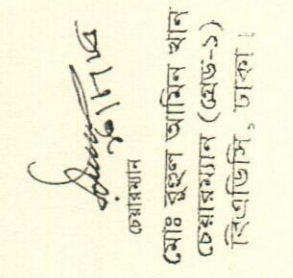 চেয়ারম্যান
মোঃ রুহুল আমিন খান
চেয়ারম্যান (গ্রেড-১)
বিএডিসি, ঢাকা।